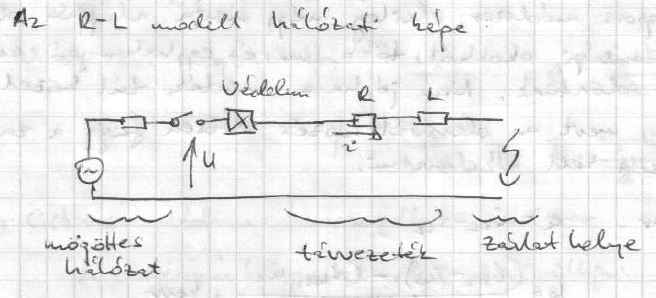 Az R-L modell hálózati képe:
Védelem R L
i
U
mögöttes
hálózat
távvezeték
zárlat helye